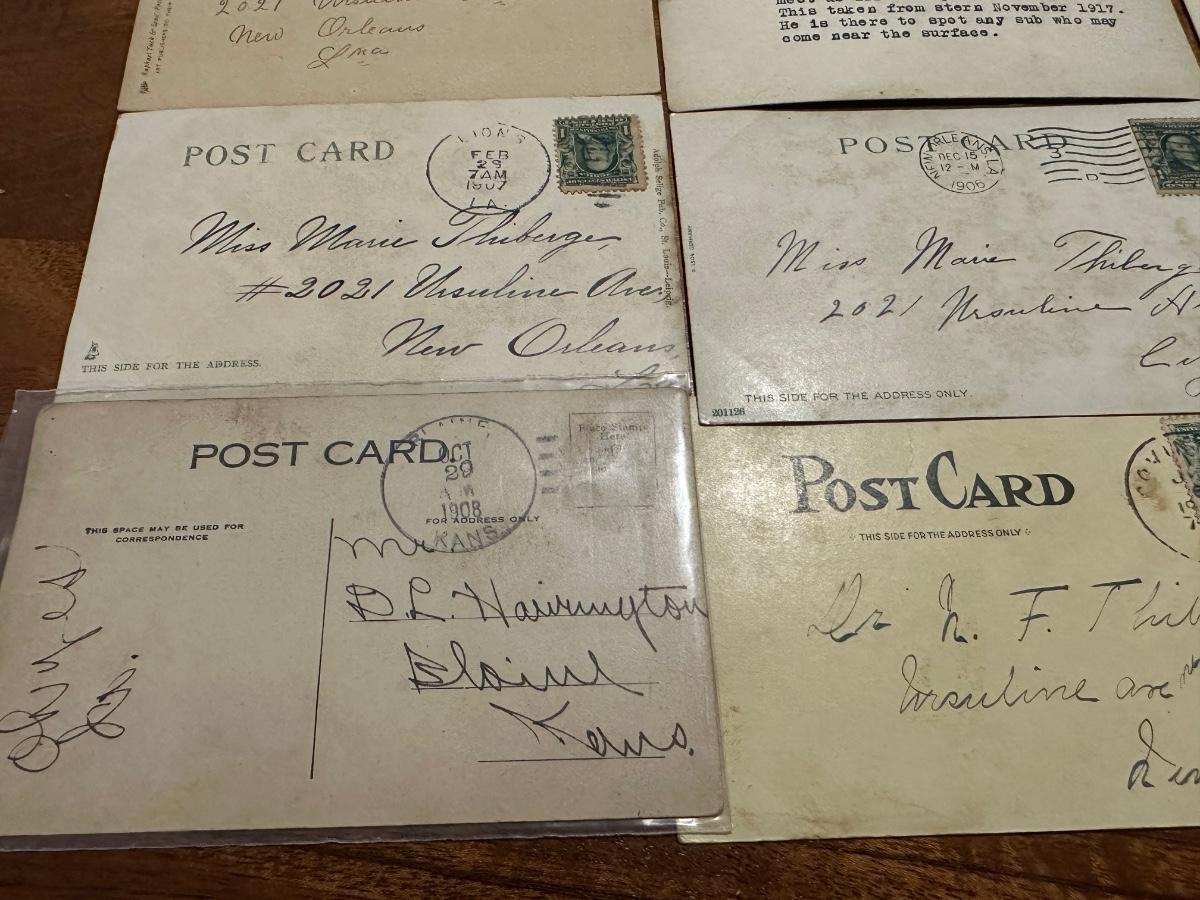 2021
New Orleans
La
Raphael Tuck & Sons'
This taken from stern November 1917.
He is there to spot any sub who may
come near the surface.
POST CARD
LIONS
FEB
25
7AM
1907
LA.
1
Adolph Selige Pub. Co., St. Louis—Leipzig
Miss Marie Thiberge,
#2021 Ursuline Ave,
New Orleans,
THIS SIDE FOR THE ADDRESS.
POST CARD
NEW ORLEANS, LA
DEC 15
12 - M
1906
3
D
Miss Marie Thiberg
2021 Ursuline A
THIS SIDE FOR THE ADDRESS ONLY.
201126
POST CARD
BLAINE,
OCT
29
A M
1908
KANS.
Place Stamp
Here
THIS SPACE MAY BE USED FOR
CORRESPONDENCE
FOR ADDRESS ONLY
Mr
Blaine
Kans.
POST CARD
THIS SIDE FOR THE ADDRESS ONLY
Dr N. F. Thib
Ursuline ave